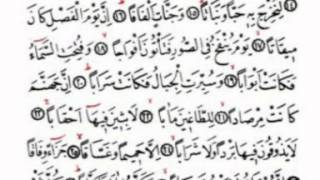 لِنُخْرِجَ بِهِ حَبًّا وَنَبَاتًا ۝ وَجَنَّاتٍ أَلْفَافًا ۝ إِنَّ يَوْمَ الْفَصْلِ كَانَ
مِيقَاتًا ۝ يَوْمَ يُنْفَخُ فِي الصُّورِ فَتَأْتُونَ أَفْوَاجًا ۝ وَفُتِحَتِ السَّمَاءُ
فَكَانَتْ أَبْوَابًا ۝ وَسُيِّرَتِ الْجِبَالُ فَكَانَتْ سَرَابًا ۝ إِنَّ جَهَنَّمَ
كَانَتْ مِرْصَادًا ۝ لِلطَّاغِينَ مَآبًا ۝ لَابِثِينَ فِيهَا أَحْقَابًا ۝
لَا يَذُوقُونَ فِيهَا بَرْدًا وَلَا شَرَابًا ۝ إِلَّا حَمِيمًا وَغَسَّاقًا ۝ جَزَاءً وِفَاقًا